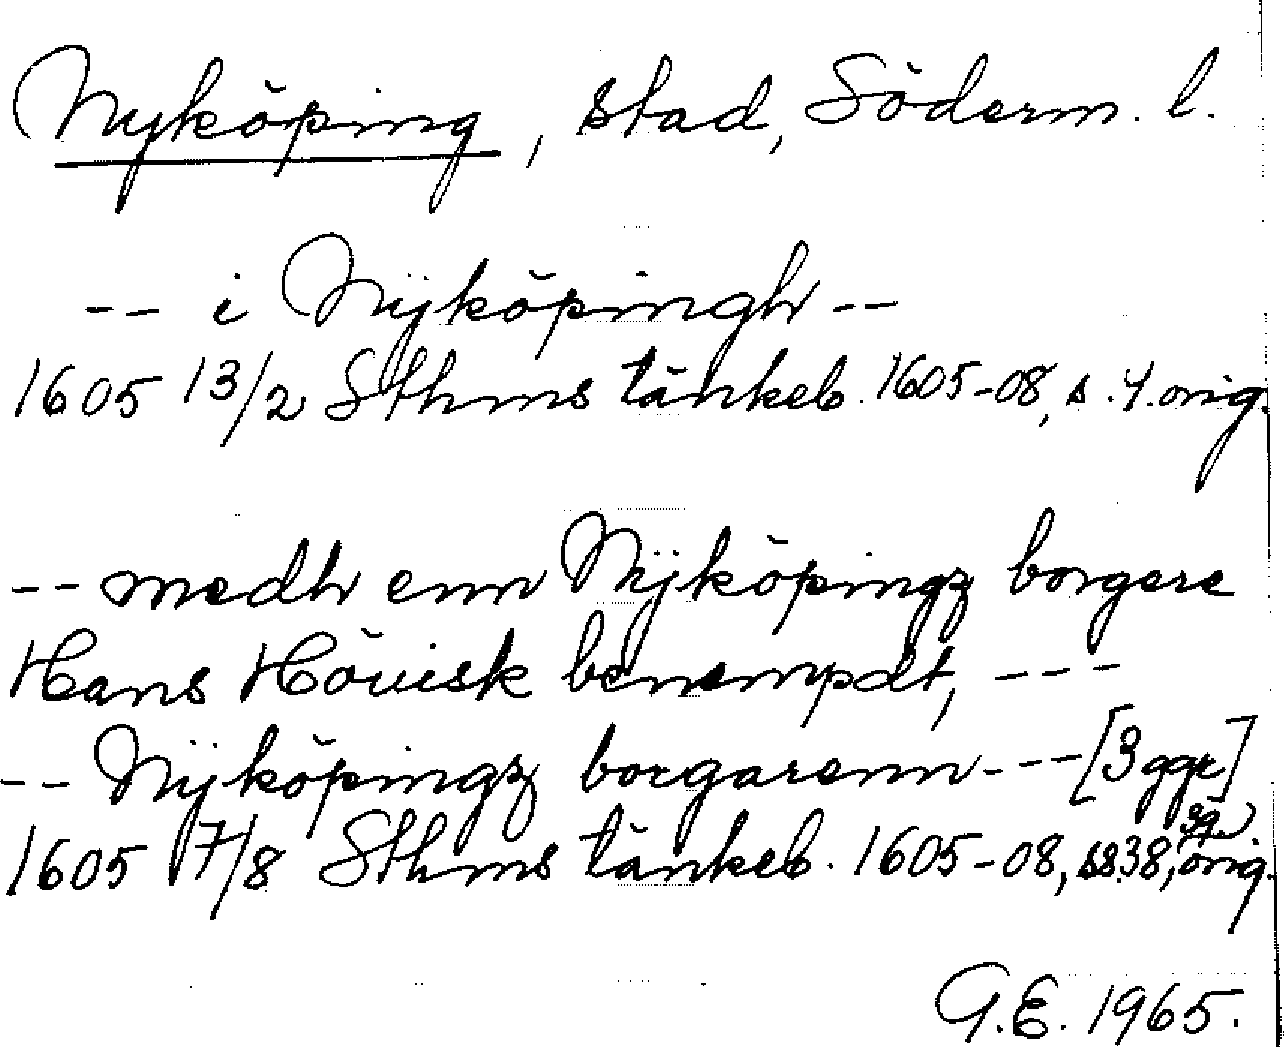 Nyköping, stad, Söderm. l.
-- i Nÿköpingh --
1605 13/2 Sthms tänkeb. 1605-08, s. 4. orig.
-- medh enn Nÿköpingz borgere
Hans Höuisk benempdt, ---
-- Nÿköpingz borgarenn --- [3 ggr]
1605 17/8 Sthms tänkeb. 1605-08, ss. 38, 39. orig.
G.E. 1965.